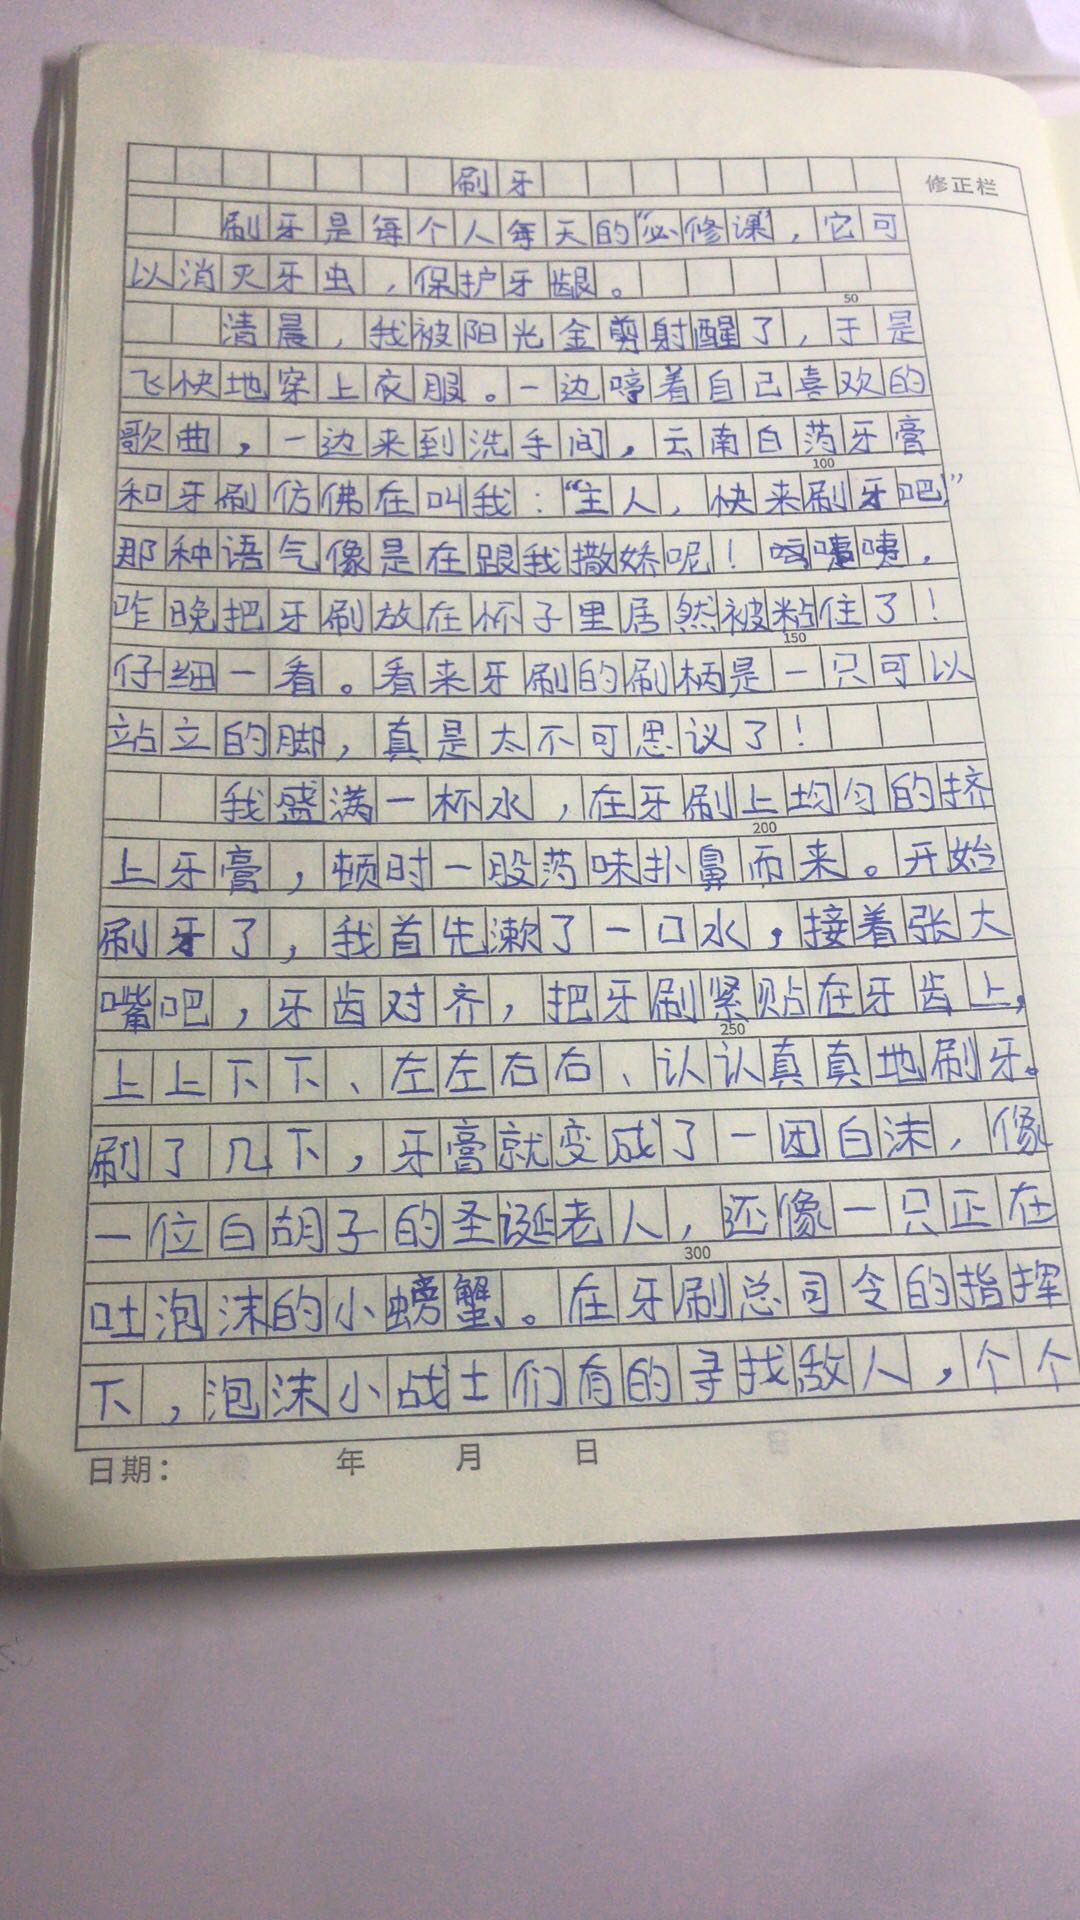 刷牙
修正栏
刷牙是每个人每天的“必修课”,它可
以消灭牙虫,保护牙龈。
50
清晨,我被阳光金剪射醒了,于是
飞快地穿上衣服。一边哼着自己喜欢的
歌曲,一边来到洗手间,云南白药牙膏
100
和牙刷仿佛在叫我:“主人,快来刷牙吧”
那种语气像是在跟我撒娇呢!咦,
昨晚把牙刷放在杯子里居然被粘住了!
150
仔细一看。看来牙刷的刷柄是一只可以
站立的脚,真是太不可思议了!
我盛满一杯水,在牙刷上均匀的挤
200
上牙膏,顿时一股药味扑鼻而来。开始
刷牙了,我首先漱了一口水,接着张大
嘴吧,牙齿对齐,把牙刷紧贴在牙齿上,
250
上上下下、左左右右、认认真真地刷牙。
刷了几下,牙膏就变成了一团白沫,像
一位白胡子的圣诞老人,还像一只正在
300
吐泡沫的小螃蟹。在牙刷总司令的指挥
下,泡沫小战士们有的寻找敌人,个个
日期: 年 月 日